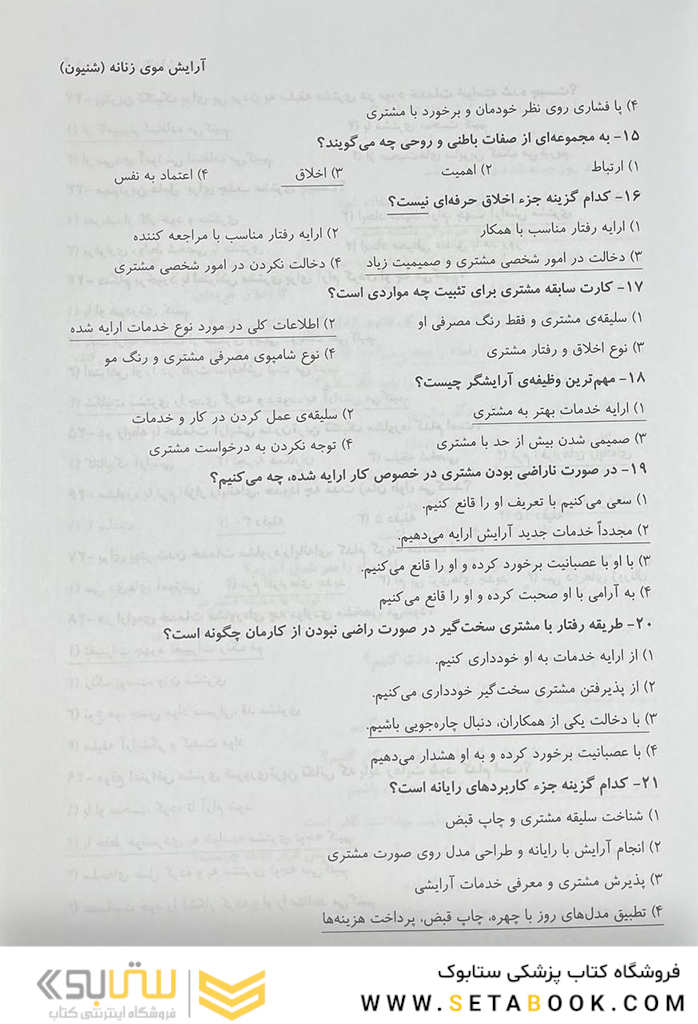 آرایش موی زنانه (شنیون)
۴) پا فشاری روی نظر خودمان و برخورد با مشتری
۱۵- به مجموعه‌ای از صفات باطنی و روحی چه می‌گویند؟
۱) ارتباط ۲) اهمیت ۳) اخلاق ۴) اعتماد به نفس
۱۶- کدام گزینه جزء اخلاق حرفه‌ای نیست؟
۱) ارایه رفتار مناسب با همکار ۲) ارایه رفتار مناسب با مراجعه کننده
۳) دخالت در امور شخصی مشتری و صمیمیت زیاد ۴) دخالت نکردن در امور شخصی مشتری
۱۷- کارت سابقه مشتری برای تثبیت چه مواردی است؟
۱) سلیقه‌ی مشتری و فقط رنگ مصرفی او ۲) اطلاعات کلی در مورد نوع خدمات ارایه شده
۳) نوع اخلاق و رفتار مشتری ۴) نوع شامپوی مصرفی مشتری و رنگ مو
۱۸- مهم‌ترین وظیفه‌ی آرایشگر چیست؟
۱) ارایه خدمات بهتر به مشتری ۲) سلیقه‌ی عمل کردن در کار و خدمات
۳) صمیمی شدن بیش از حد با مشتری ۴) توجه نکردن به درخواست مشتری
۱۹- در صورت ناراضی بودن مشتری در خصوص کار ارایه شده، چه می‌کنیم؟
۱) سعی می‌کنیم با تعریف او را قانع کنیم.
۲) مجدداً خدمات جدید آرایش ارایه می‌دهیم.
۳) با او با عصبانیت برخورد کرده و او را قانع می‌کنیم.
۴) به آرامی با او صحبت کرده و او را قانع می‌کنیم
۲۰- طریقه رفتار با مشتری سخت‌گیر در صورت راضی نبودن از کارمان چگونه است؟
۱) از ارایه خدمات به او خودداری کنیم.
۲) از پذیرفتن مشتری سخت‌گیر خودداری می‌کنیم.
۳) با دخالت یکی از همکاران، دنبال چاره‌جویی باشیم.
۴) با عصبانیت برخورد کرده و به او هشدار می‌دهیم
۲۱- کدام گزینه جزء کاربردهای رایانه است؟
۱) شناخت سلیقه مشتری و چاپ قبض
۲) انجام آرایش با رایانه و طراحی مدل روی صورت مشتری
۳) پذیرش مشتری و معرفی خدمات آرایشی
۴) تطبیق مدل‌های روز با چهره، چاپ قبض، پرداخت هزینه‌ها
فروشگاه کتاب پزشکی ستابوک
WWW.SETABOOK.COM
ستابوک
فروشگاه اینترنتی کتاب